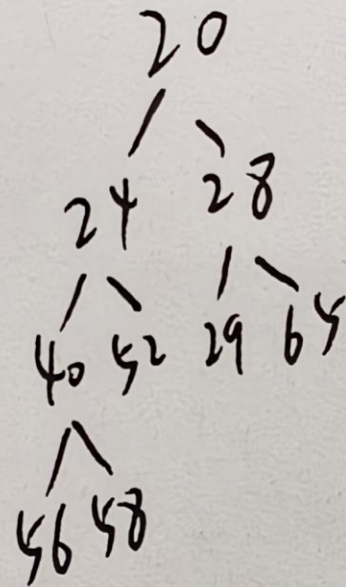 20
24 28
40 52 29 65
56 58